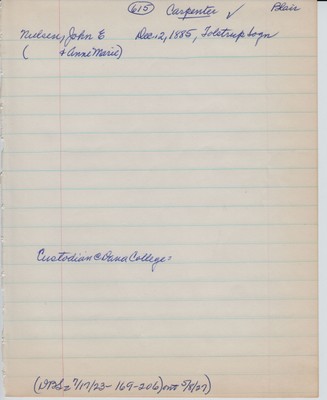 615 Carpenter ✓ Blair
Nielsen, John E Dec 2, 1885, Tolstrup Sogn
( & Anne Marie)
Custodian @ Dana College:
(DBS = 7/17/23 - 169-206) ont 5/5/27)